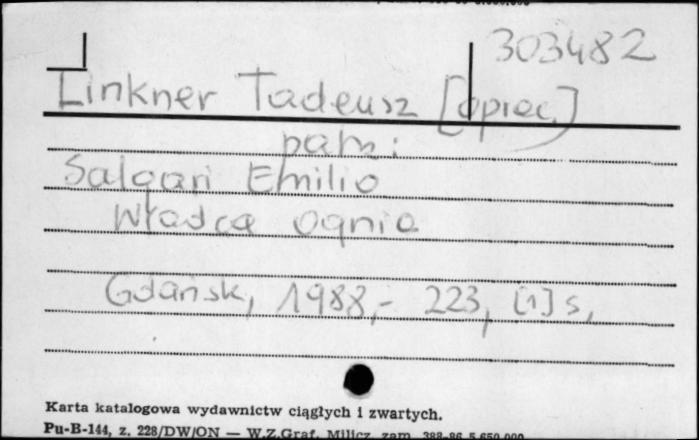 303482
Linkner Tadeusz [oprac.]
patrz:
Salgari Emilio
Władca ognia
Gdańsk, 1988,- 223, [1] s,
Karta katalogowa wydawnictw ciągłych i zwartych.
Pu-B-144, z. 228/DW/ON — W.Z.Graf. Milicz zam. 388-86 5.650.000